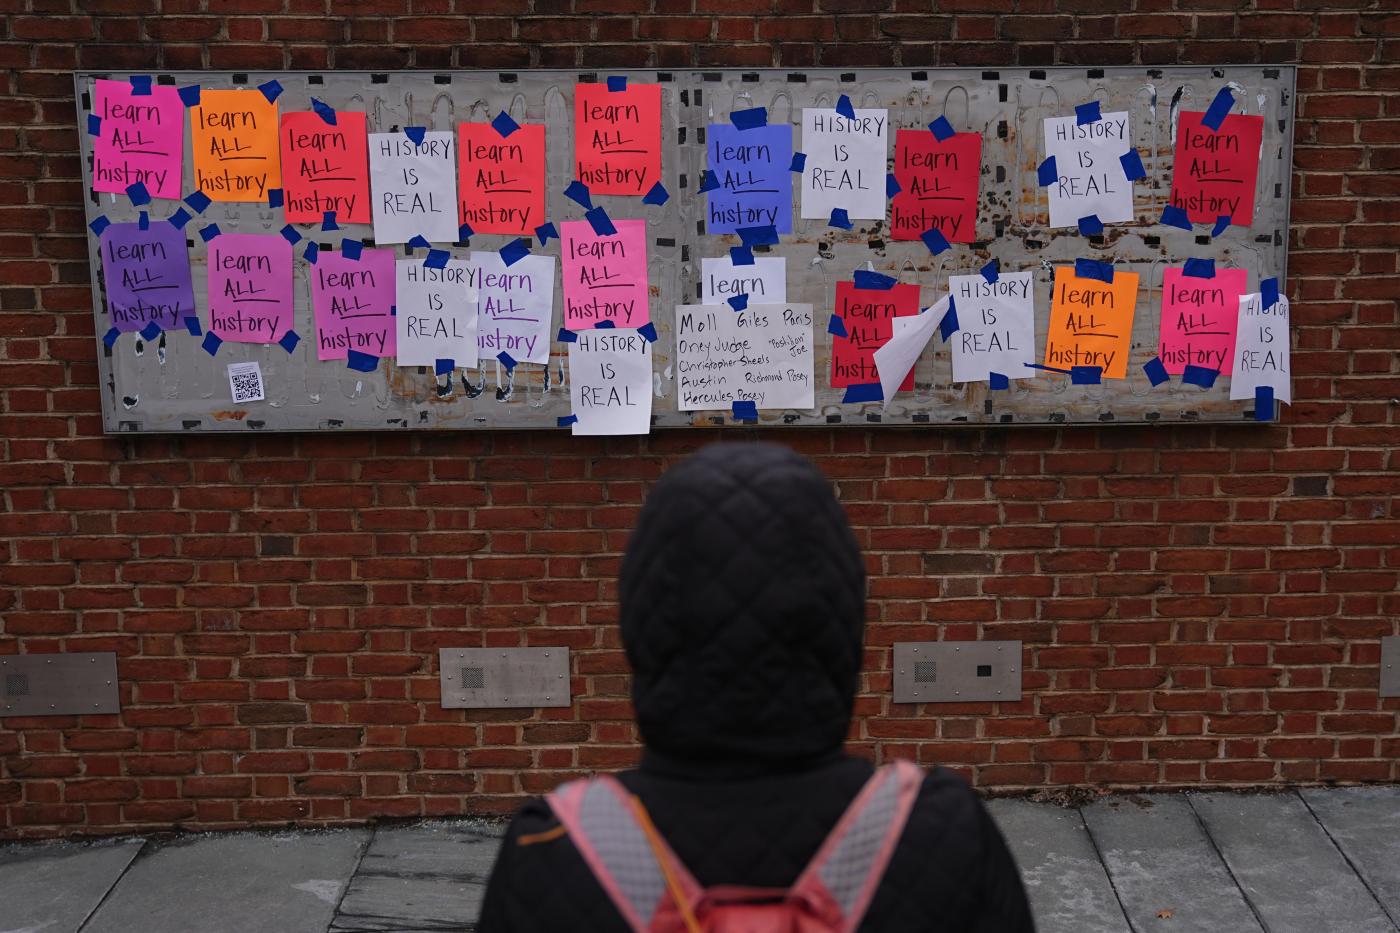 learn
ALL
history
learn
ALL
history
learn
ALL
history
HISTORY
IS
REAL
learn
ALL
history
learn
ALL
history
learn
ALL
history
HISTORY
IS
REAL
learn
ALL
history
HISTORY
IS
REAL
learn
ALL
history
learn
ALL
history
learn
ALL
history
learn
ALL
history
HISTORY
IS
REAL
learn
ALL
history
learn
ALL
history
HISTORY
IS
REAL
learn
Moll Giles Paris
Oney Judge "Postilion" Joe
Christopher Sheels
Austin Richmond Posey
Hercules Posey
learn
ALL
HISTORY
IS
REAL
learn
ALL
history
learn
ALL
history
IS
REAL